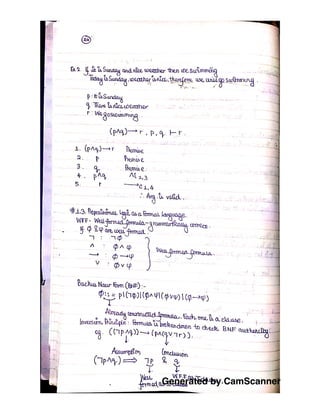 Ex 2. If it is Sunday and nice weather then we swimming
Today is Sunday, weather is nice, therefore we go swimming
p : It is Sunday
q There is nice weather
r We go swimming
(p∧q) → r , p , q ⊢ r
1. (p∧q) → r Premise
2. p Premise
3. q Premise
4. p∧q ∧i 2,3
5. r →e 1,4
∴ Arg. is valid.
1.3. Propositional logic as a Formal Language
WFF - Well formed formula - grammatically correct
If φ & ψ are well formed
¬ : ¬φ
∧ : φ∧ψ
→ : φ→ψ
∨ : φ∨ψ
Well formed formula
Backus Naur Form (BNF) :-
φ ::= p|(¬φ)|(φ∧ψ)|(φ∨ψ)|(φ→ψ)
Already constructed formula. Each one is a clause.
Inversion Principle : Formula is broken down to check BNF
eg ((¬p∧q) → (p∧(q∨¬r)).
Assumption Conclusion
(¬p∧q) ⇒ ¬p & q
Well WFF
formed
Generated by CamScanner